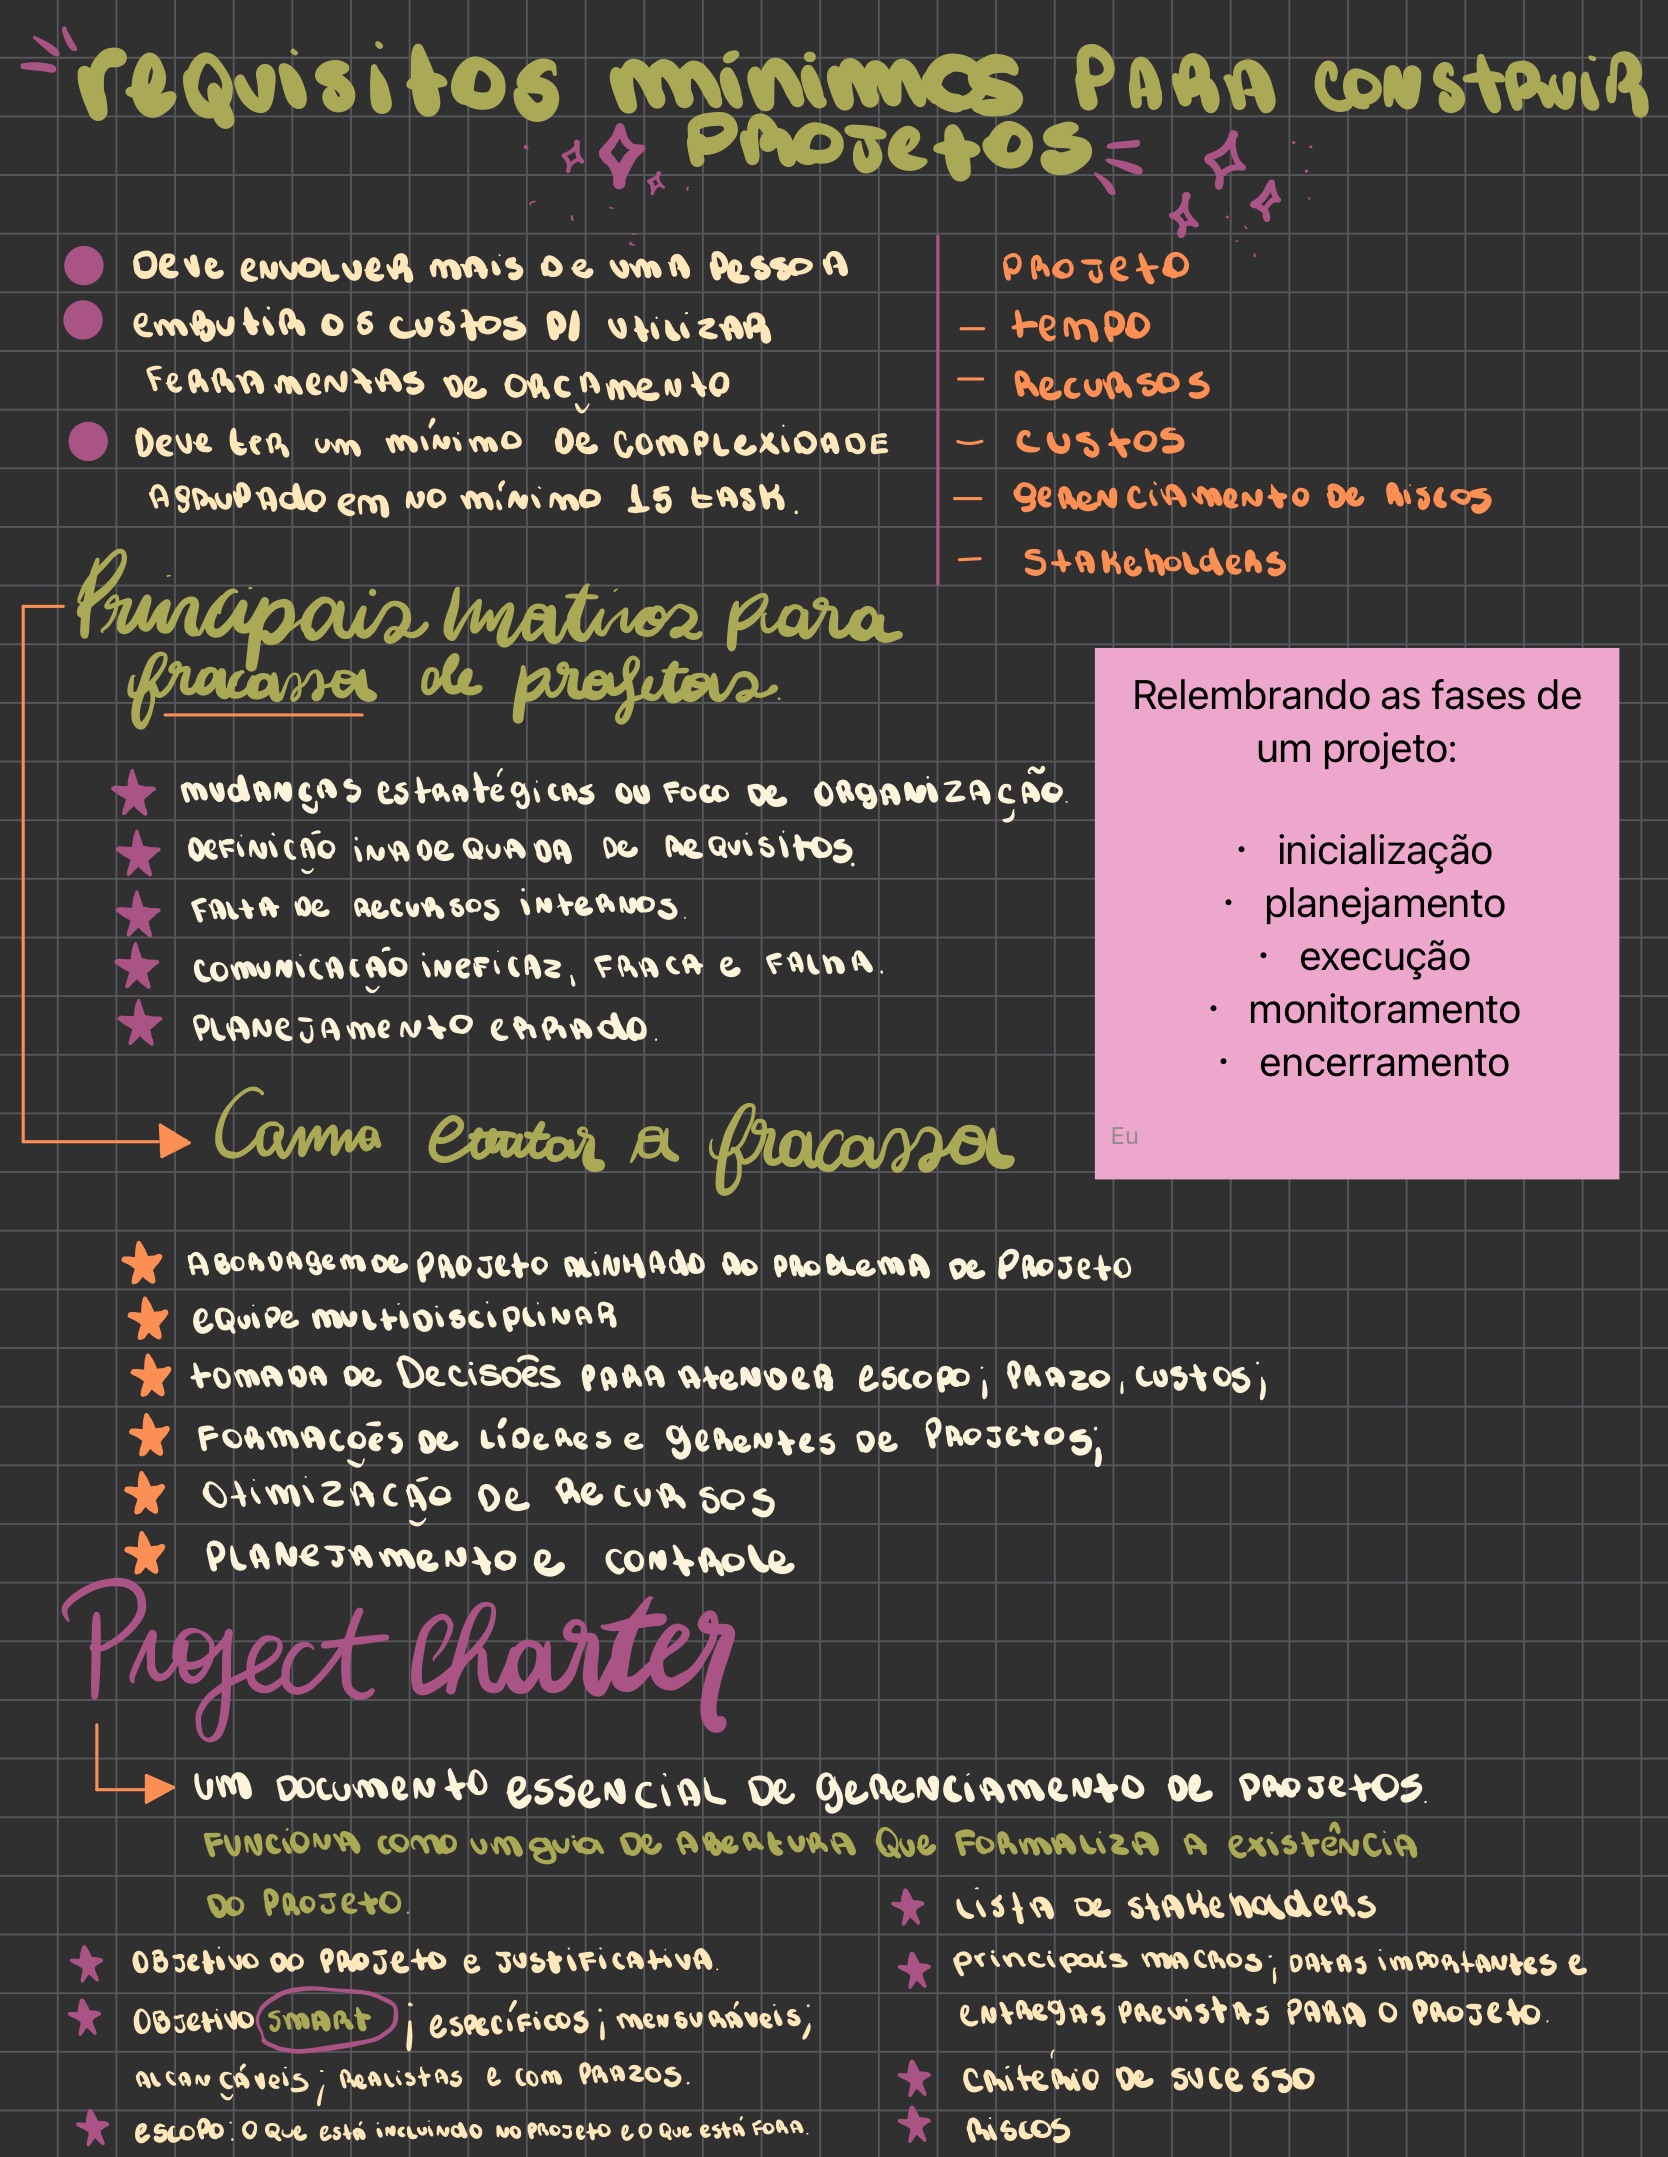 requisitos mínimos PARA CONSTRUIR
PROJETOS
DEVE ENVOLVER MAIS DE UMA PESSOA
EMBUTIR OS CUSTOS P/ UTILIZAR
FERRAMENTAS DE ORÇAMENTO
DEVE TER UM MÍNIMO DE COMPLEXIDADE
AGRUPADO EM NO MÍNIMO 15 TASK.
PROJETO
— TEMPO
— RECURSOS
— CUSTOS
— GERENCIAMENTO DE RISCOS
— STAKEHOLDERS
Principais motivos para
fracasso de projetos.
MUDANÇAS ESTRATÉGICAS OU FOCO DE ORGANIZAÇÃO.
DEFINIÇÃO INADEQUADA DE REQUISITOS.
FALTA DE RECURSOS INTERNOS.
COMUNICAÇÃO INEFICAZ, FRACA E FALHA.
PLANEJAMENTO ERRADO.
Relembrando as fases de
um projeto:
· inicialização
· planejamento
· execução
· monitoramento
· encerramento
Eu
Como evitar o fracasso
ABORDAGEM DE PROJETO ALINHADO AO PROBLEMA DE PROJETO
EQUIPE MULTIDISCIPLINAR
TOMADA DE DECISOÊS PARA ATENDER ESCOPO; PRAZO, CUSTOS;
FORMAÇOẼS DE LÍDERES E GERENTES DE PROJETOS;
OTIMIZAÇÃO DE RECURSOS
PLANEJAMENTO E CONTROLE
Project Charter
UM DOCUMENTO ESSENCIAL DE GERENCIAMENTO DE PROJETOS.
FUNCIONA COMO UM guia DE ABERTURA QUE FORMALIZA A EXISTÊNCIA
DO PROJETO.
OBJETIVO DO PROJETO E JUSTIFICATIVA.
OBJETIVO SMART ; ESPECÍFICOS; MENSURÁVEIS;
ALCANÇÁVEIS; REALISTAS E COM PRAZOS.
ESCOPO: O QUE ESTÁ INCLUINDO NO PROJETO E O QUE ESTÁ FORA.
LISTA DE STAKEHOLDERS
principais MACROS; DATAS IMPORTANTES E
ENTREGAS PREVISTAS PARA O PROJETO.
CRITÉRIO DE SUCESSO
RISCOS